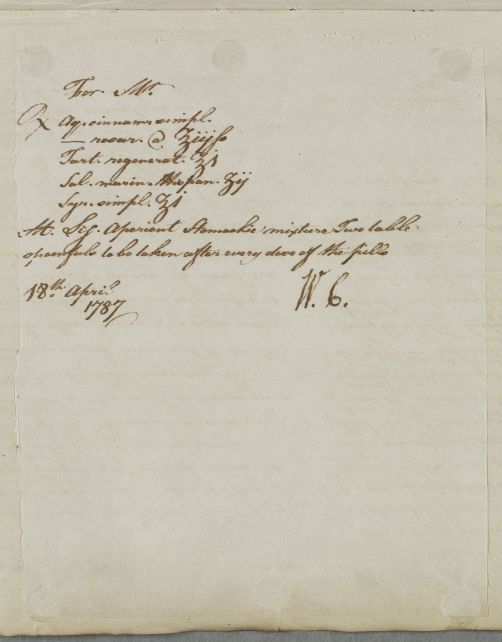 For Mr.
℞ Aq. cinnam. simpl.
— rosar. @ ℥iijſs
Tart. regenerat. ʒj
Sal. marin. Hispan. ʒij
Syr. simpl. ℥j
M. Sig. Aperient Stomachic mixture Two table
spoonfuls to be taken after every dose of the pills
18th. April
1787
W. C.